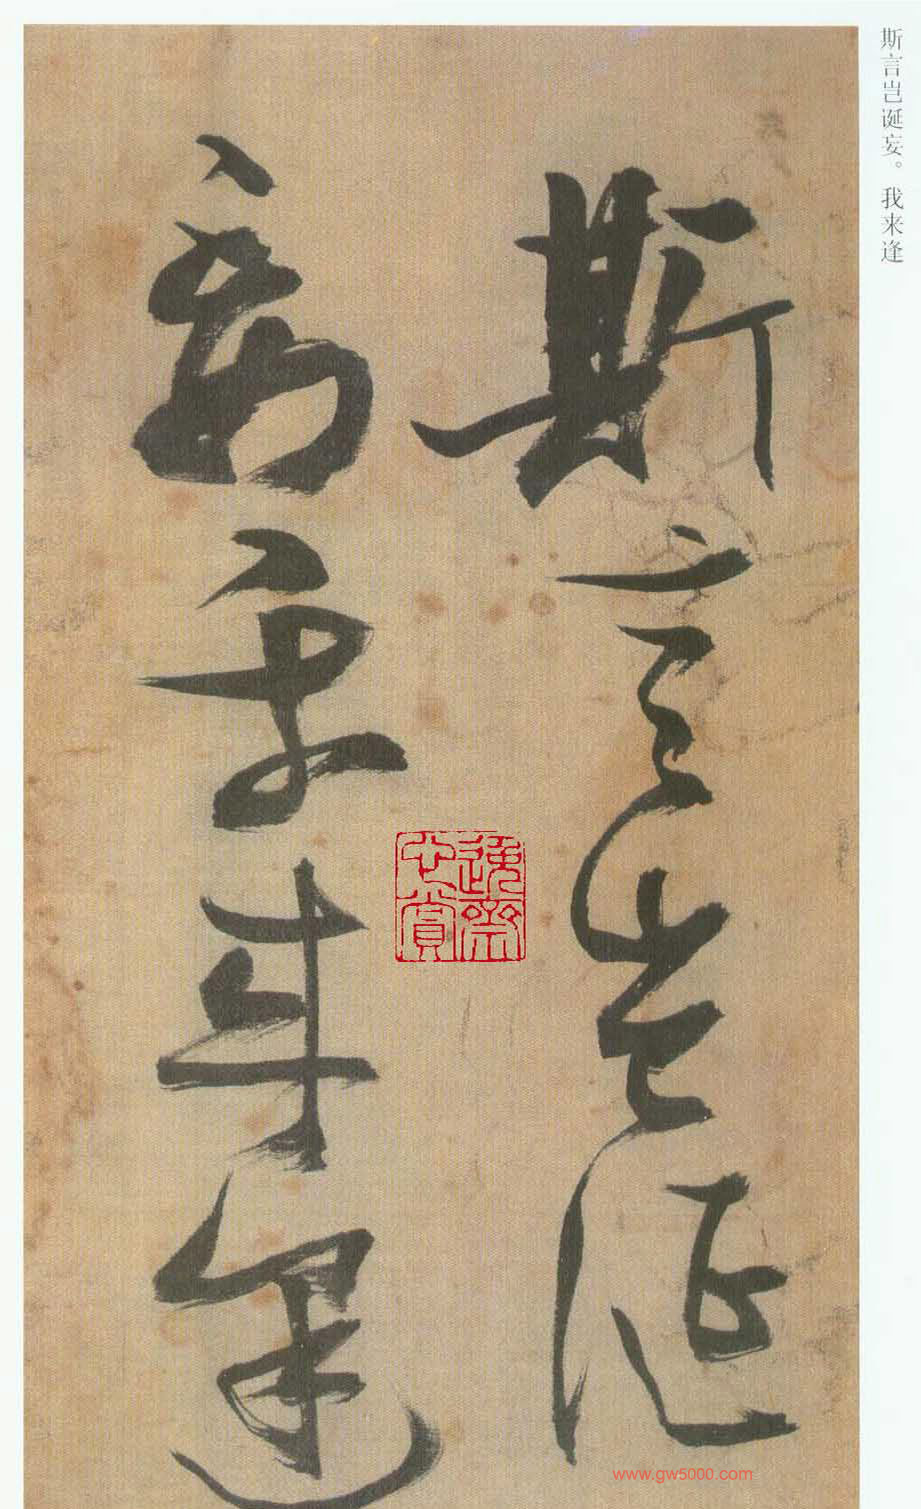 斯言岂诞妄。我来逢
斯言豈誕
妄我来逢
www.gw5000.com